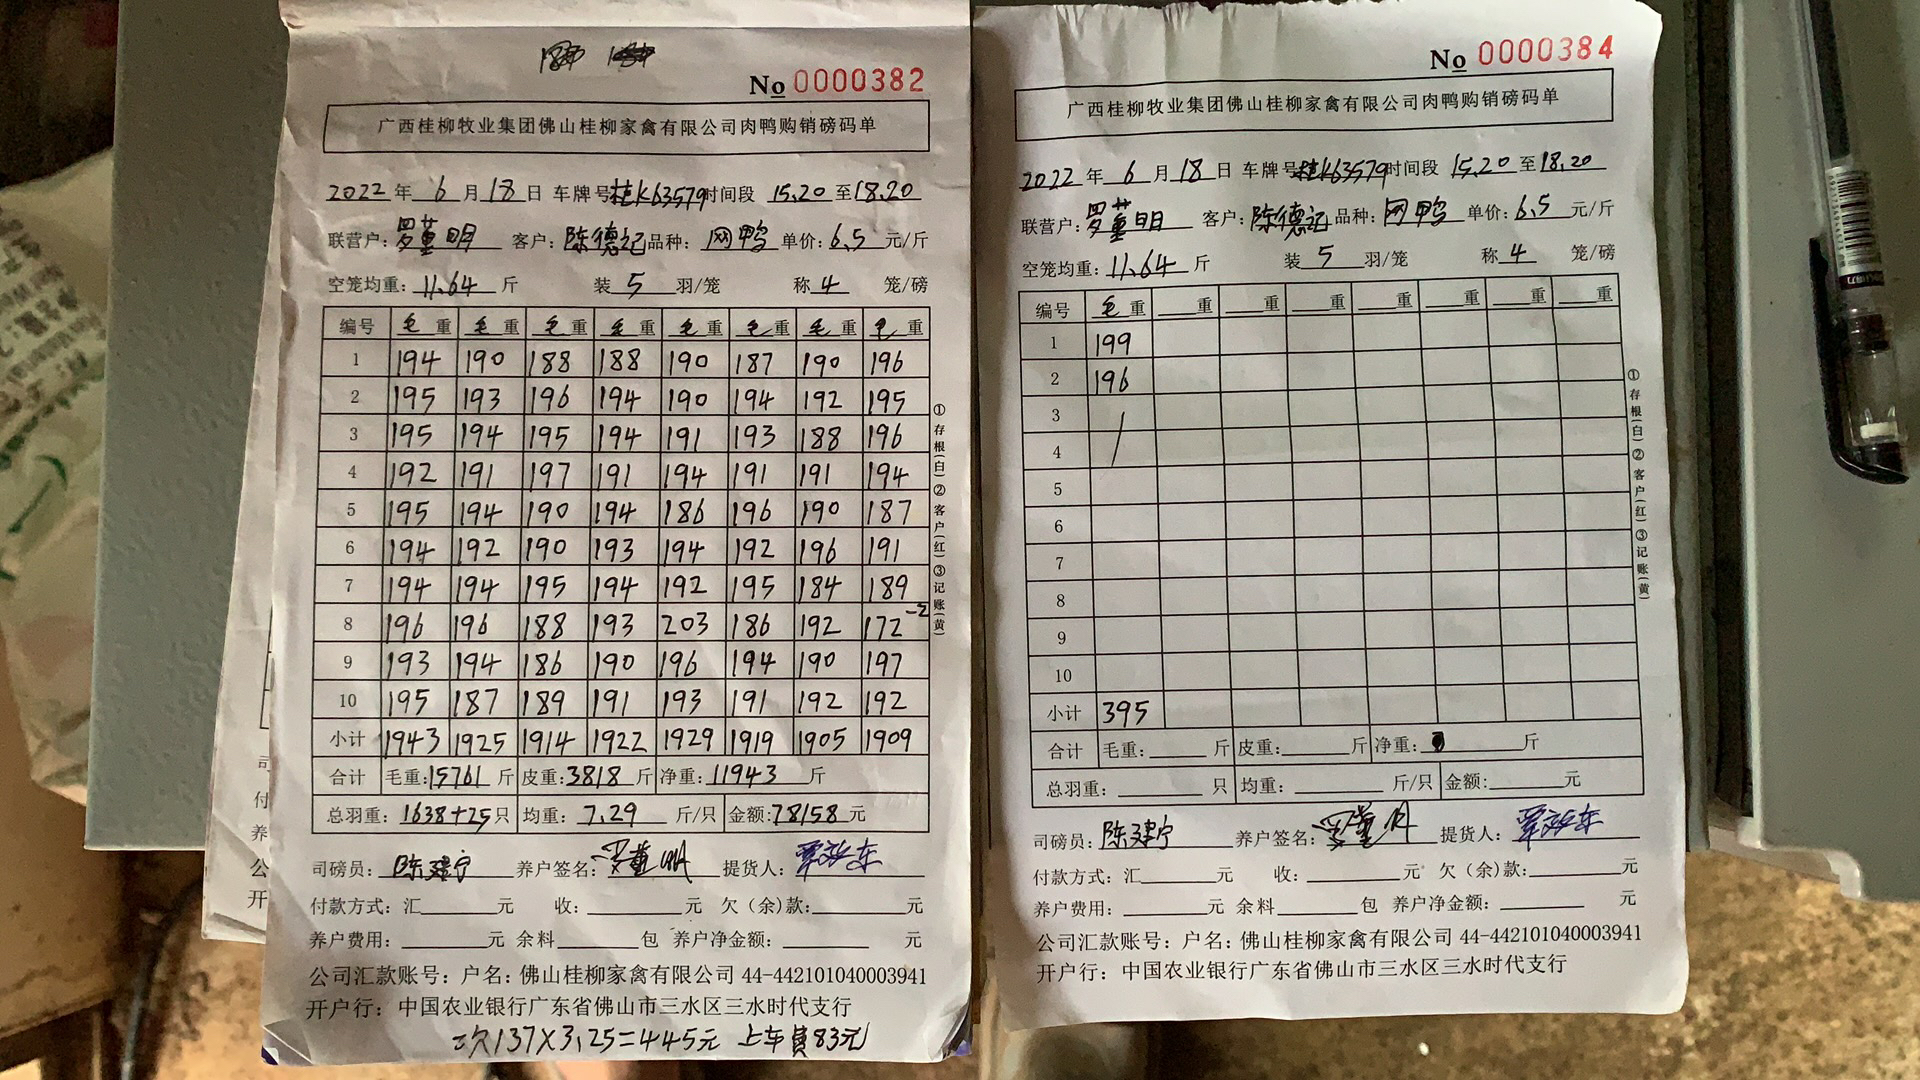 No 0000382
广西桂柳牧业集团佛山桂柳家禽有限公司肉鸭购销磅码单
2022 年 6 月 18 日 车牌号 桂K63579 时间段 15.20 至 18.20
联营户: 罗董明 客户: 陈德记 品种: 网鸭 单价: 6.5 元/斤
空笼均重: 11.64 斤 装 5 羽/笼 称 4 笼/磅
编号 毛重 毛重 毛重 毛重 毛重 毛重 毛重 毛重
1 194 190 188 188 190 187 190 196
2 195 193 196 194 190 194 192 195
3 195 194 195 194 191 193 188 196
4 192 191 197 191 194 191 191 194
5 195 194 190 194 186 196 190 187
6 194 192 190 193 194 192 196 191
7 194 194 195 194 192 195 184 189
8 196 196 188 193 203 186 192 172
9 193 194 186 190 196 194 190 197
10 195 187 189 191 193 191 192 192
小计 1943 1925 1914 1922 1929 1919 1905 1909
合计 毛重: 15761 斤 皮重: 3818 斤 净重: 11943 斤
总羽重: 1638+25 只 均重: 7.29 斤/只 金额: 78158 元
司磅员: 陈建宁 养户签名: 罗董明 提货人:
付款方式: 汇 元 收: 元 欠(余)款: 元
养户费用: 元 余料 包 养户净金额: 元
公司汇款账号: 户名: 佛山桂柳家禽有限公司 44-442101040003941
开户行: 中国农业银行广东省佛山市三水区三水时代支行
二次137X3.25=445元 上车费83元
①存根(白)②客户(红)③记账(黄)
No 0000384
广西桂柳牧业集团佛山桂柳家禽有限公司肉鸭购销磅码单
2022 年 6 月 18 日 车牌号 桂K63579 时间段 15.20 至 18.20
联营户: 罗董明 客户: 陈德记 品种: 网鸭 单价: 6.5 元/斤
空笼均重: 11.64 斤 装 5 羽/笼 称 4 笼/磅
编号 毛重 重 重 重 重 重 重 重
1 199
2 196
3
4
5
6
7
8
9
10
小计 395
合计 毛重: 斤 皮重: 斤 净重: 斤
总羽重: 只 均重: 斤/只 金额: 元
司磅员: 陈建宁 养户签名: 罗董明 提货人:
付款方式: 汇 元 收: 元 欠(余)款: 元
养户费用: 元 余料 包 养户净金额: 元
公司汇款账号: 户名: 佛山桂柳家禽有限公司 44-442101040003941
开户行: 中国农业银行广东省佛山市三水区三水时代支行
①存根(白)②客户(红)③记账(黄)